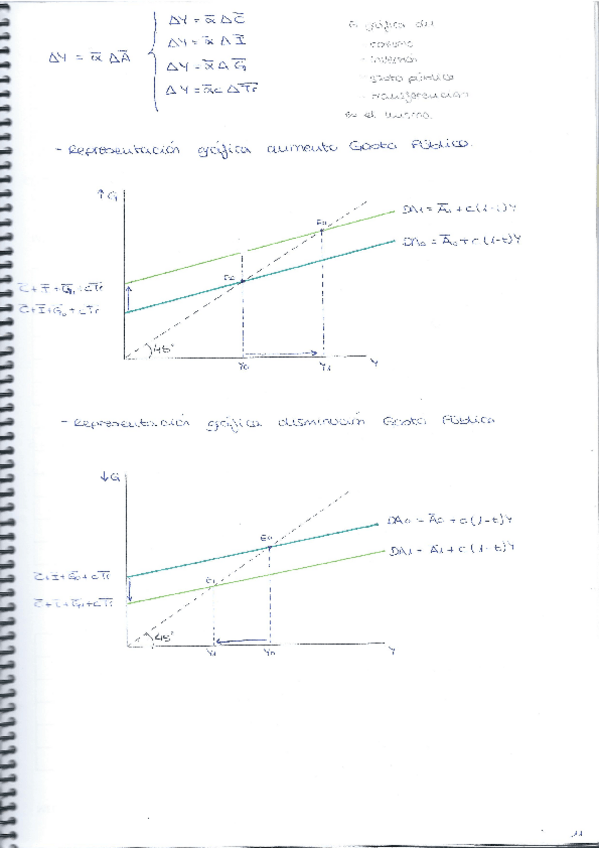 ΔY = ᾱ ΔĀ
ΔY = ᾱ ΔC̄
ΔY = ᾱ ΔĪ
ΔY = ᾱ ΔḠ
ΔY = ᾱc ΔT̄r
gráfica del
- consumo
- inversión
- gasto público
- transferencias
es el mismo.
- Representación gráfica aumento Gasto Público.
↑G
DA₁ = Ā₁ + c(1-t)Y
DA₀ = Ā₀ + c(1-t)Y
E₁
E₀
C̄ + Ī + Ḡ₁ + cT̄r
C̄ + Ī + Ḡ₀ + cT̄r
45°
Y₀
Y₁
Y
- Representación gráfica disminución Gasto Público
↓G
DA₀ = Ā₀ + c(1-t)Y
DA₁ = Ā₁ + c(1-t)Y
E₀
E₁
C̄ + Ī + Ḡ₀ + cT̄r
C̄ + Ī + Ḡ₁ + cT̄r
45°
Y₁
Y₀
Y
11